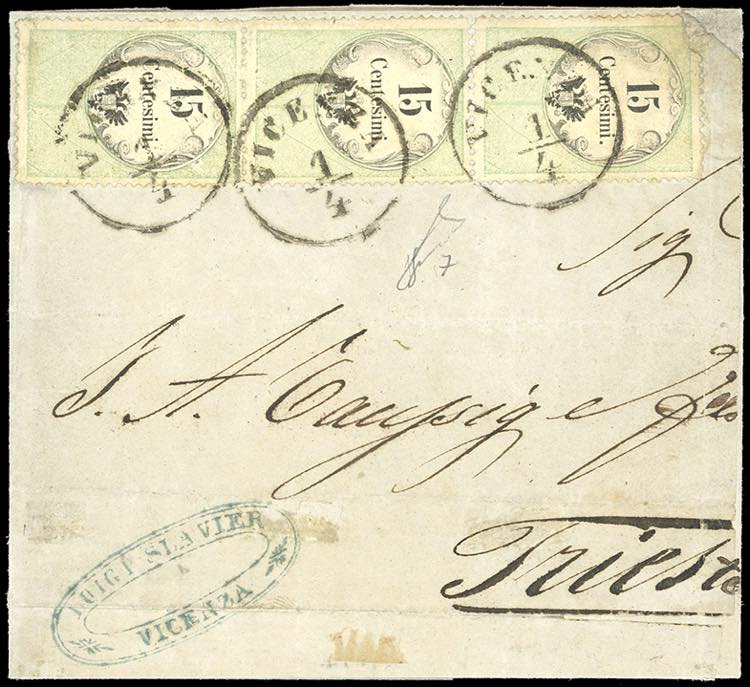 15 Centesimi.
15 Centesimi.
15 Centesimi.
VICE
1/4
VICE
1/4
7
Sig
J. A. e
Trieste
LUIGI SLAVIER
VICENZA